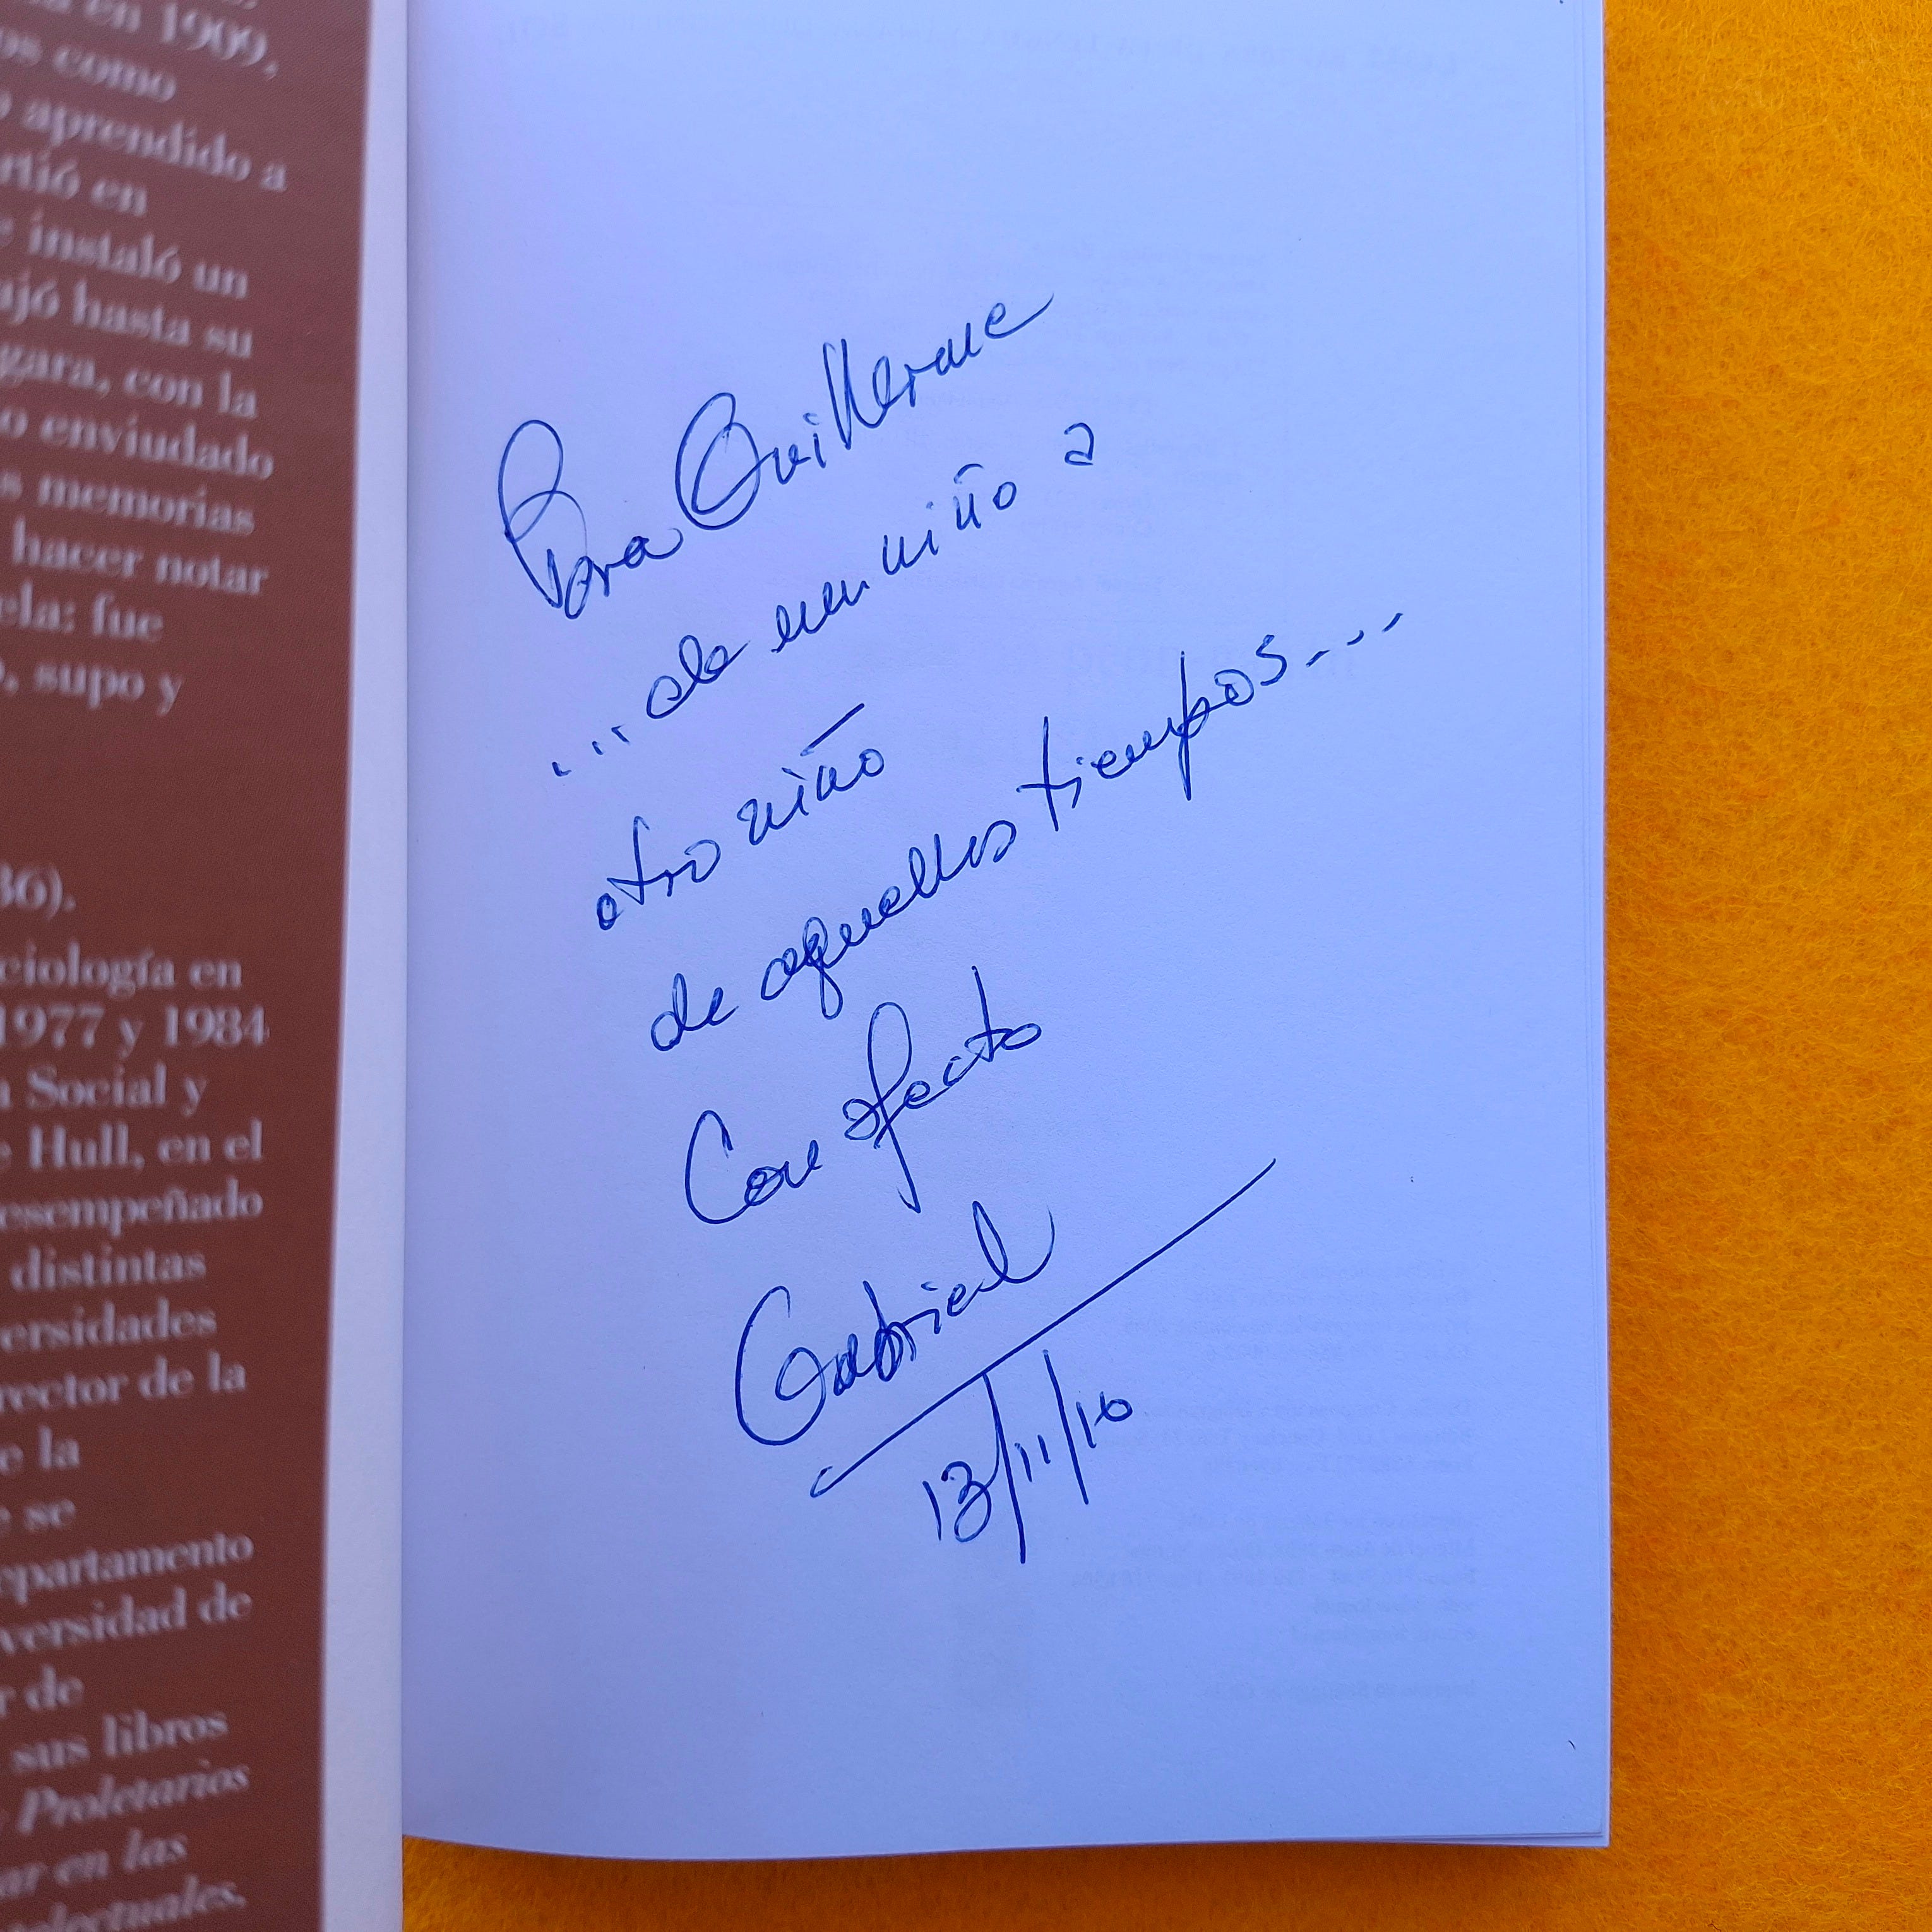 en 1909,
os como
o aprendido a
rtió en
e instaló un
ajó hasta su
gara, con la
o enviudado
s memorias
hacer notar
ela: fue
o, supo y
36).
ciología en
1977 y 1984
a Social y
e Hull, en el
esempeñado
distintas
versidades
rector de la
e la
e se
epartamento
versidad de
r de
sus libros
Proletarios
ar en las
electuales,
Para Guillermo
...de un niño a
otro niño
de aquellos tiempos...
Con afecto
Gabriel
13/11/16